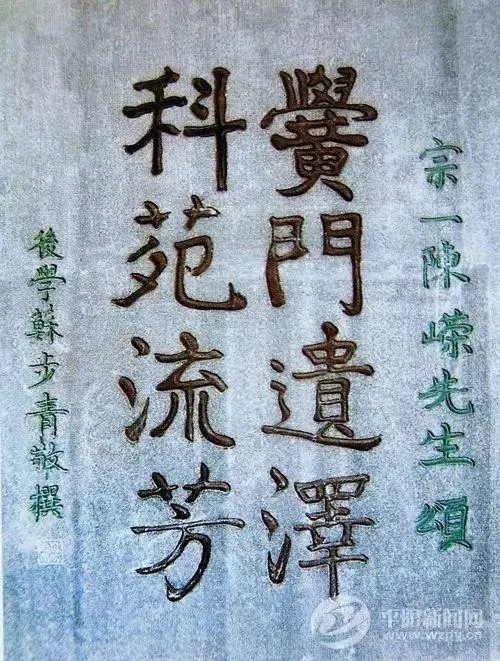 宗一陳嶸先生頌
黌門遺澤
科苑流芳
後學蘇步青敬撰
平阳新闻网
www.wzpy.cn